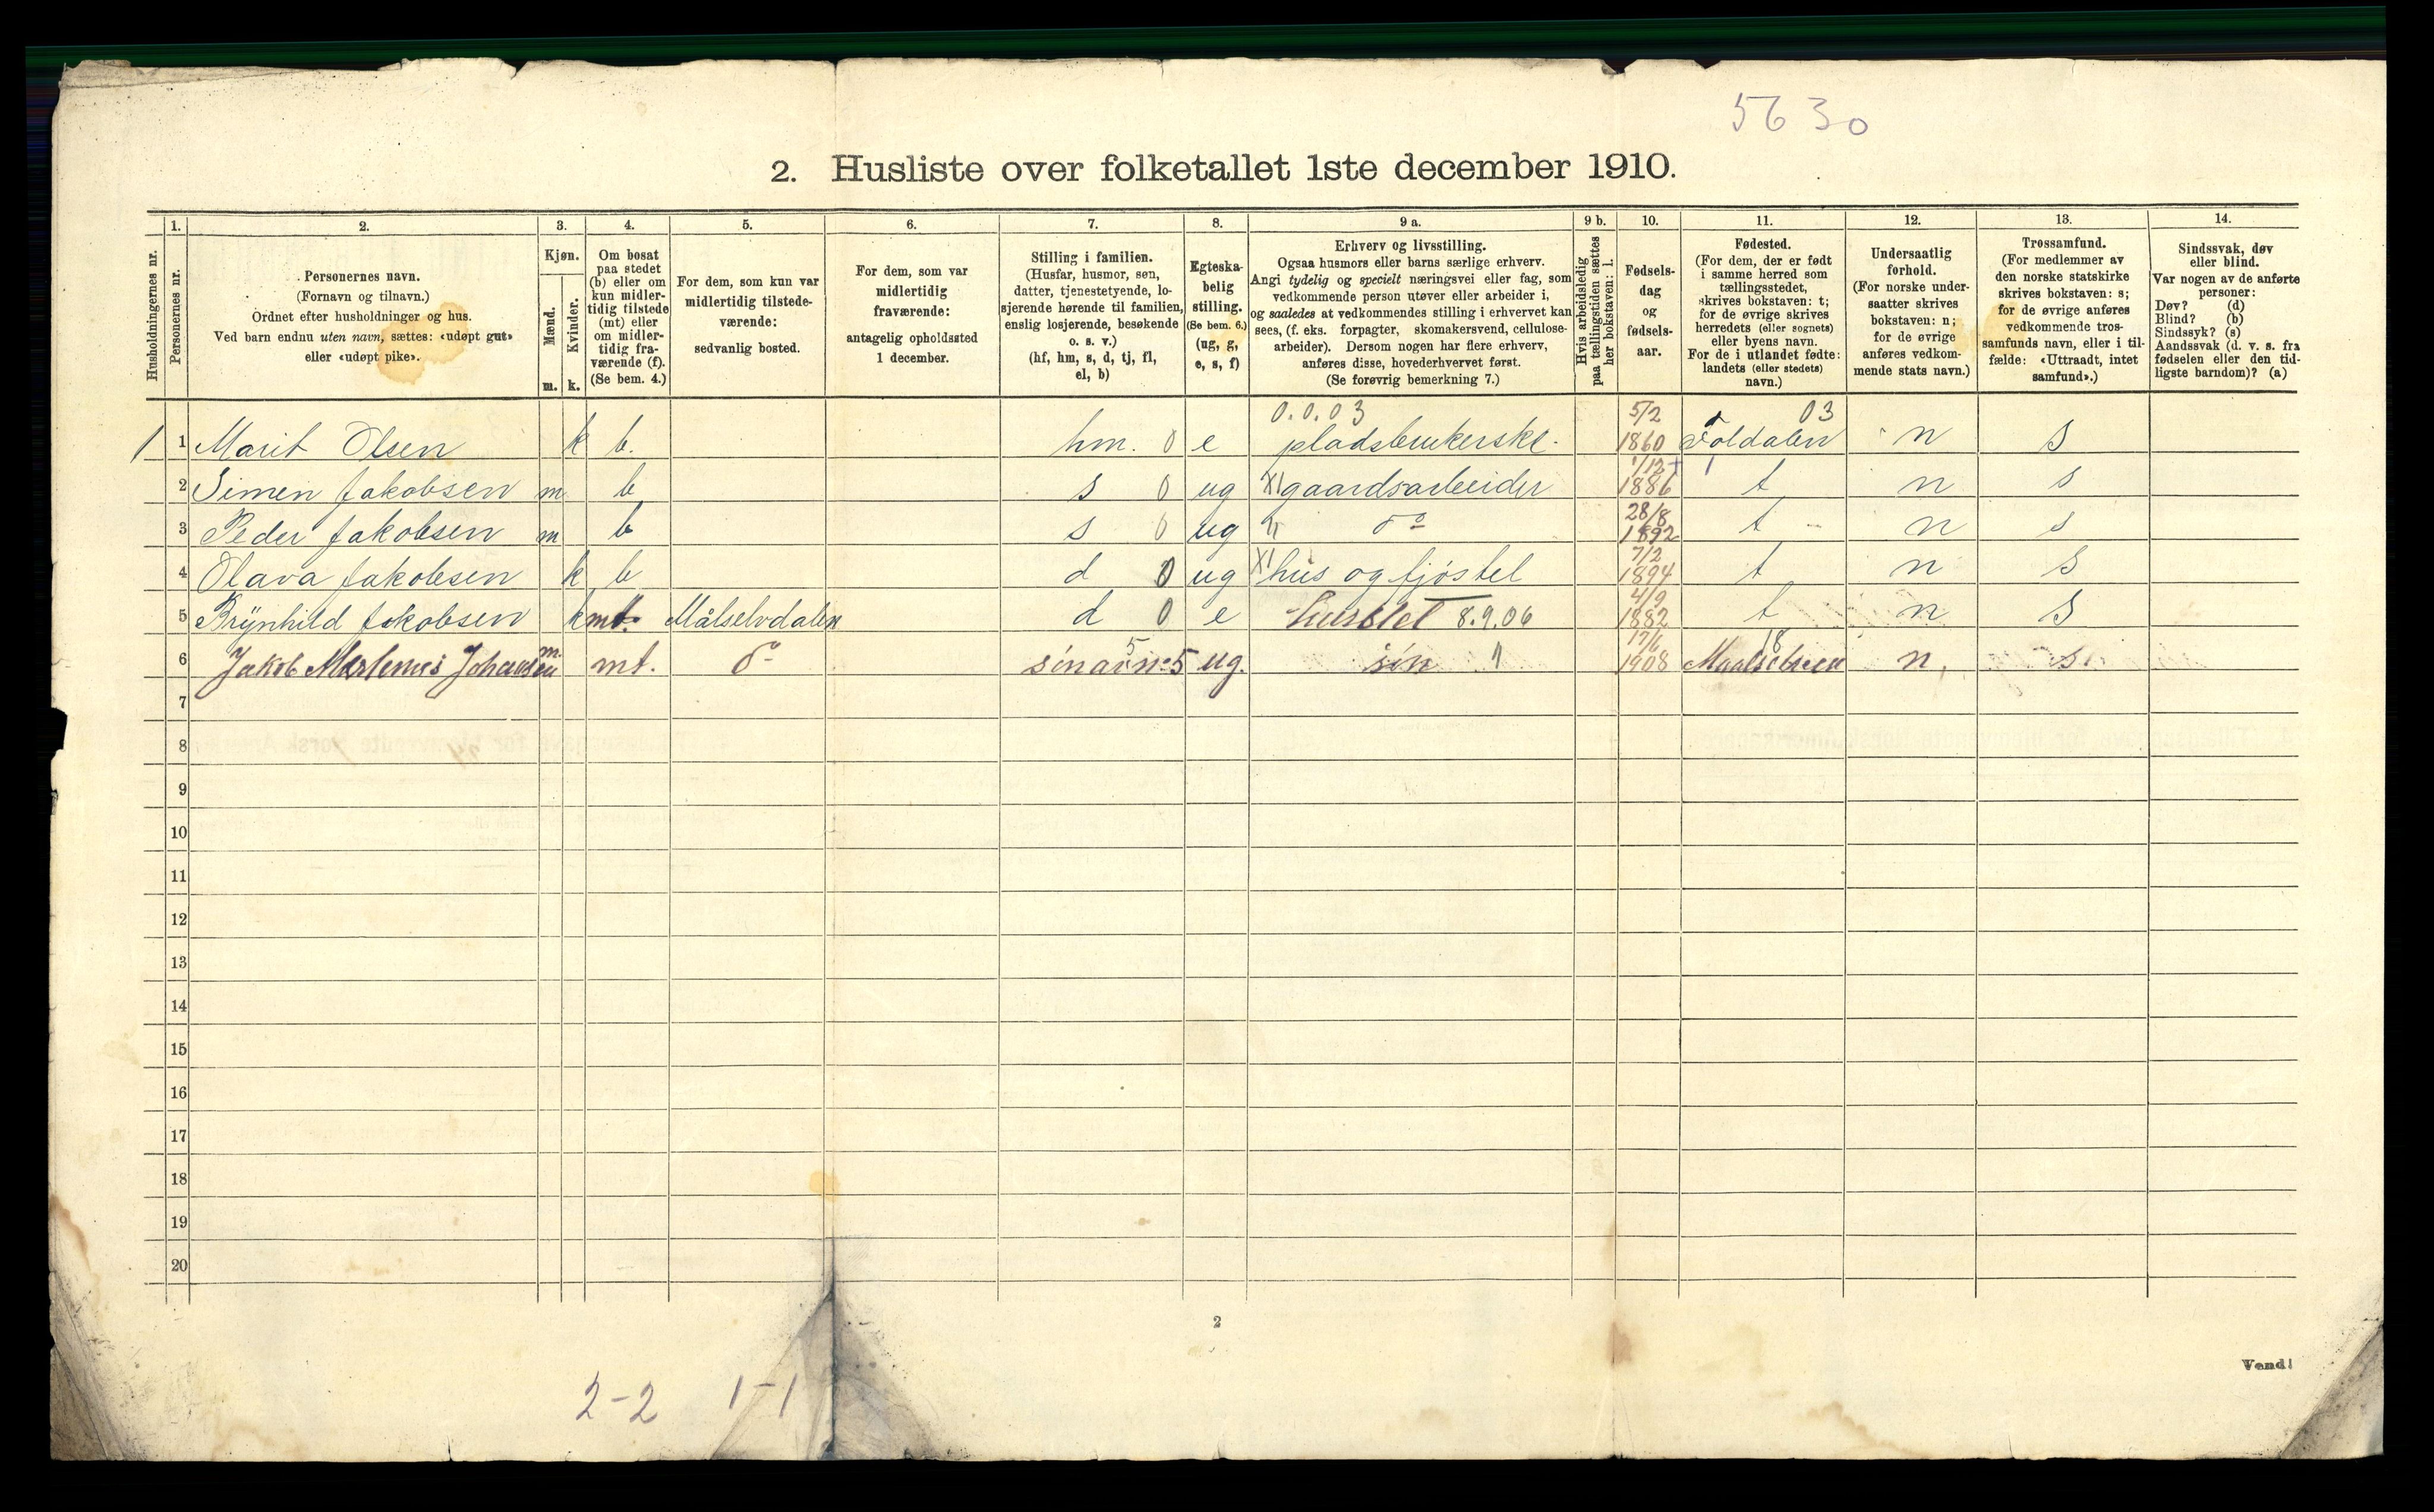 5630
2. Husliste over folketallet 1ste december 1910.
Husholdningernes nr.
1.
Personernes nr.
2.
Personernes navn.
(Fornavn og tilnavn.)
Ordnet efter husholdninger og hus.
Ved barn endnu uten navn, sættes: «udøpt gut»
eller «udøpt pike».
3.
Kjøn.
Mænd.
Kvinder.
m.
k.
4.
Om bosat
paa stedet
(b) eller om
kun midler-
tidig tilstede
(mt) eller
om midler-
tidig fra-
værende (f).
(Se bem. 4.)
5.
For dem, som kun var
midlertidig tilstede-
værende:
sedvanlig bosted.
6.
For dem, som var
midlertidig
fraværende:
antagelig opholdssted
1 december.
7.
Stilling i familien.
(Husfar, husmor, søn,
datter, tjenestetyende, lo-
sjerende hørende til familien,
enslig losjerende, besøkende
o. s. v.)
(hf, hm, s, d, tj, fl,
el, b)
8.
Egteska-
belig
stilling.
(Se bem. 6.)
(ug, g,
e, s, f)
9 a.
Erhverv og livsstilling.
Ogsaa husmors eller barns særlige erhverv.
Angi tydelig og specielt næringsvei eller fag, som
vedkommende person utøver eller arbeider i,
og saaledes at vedkommendes stilling i erhvervet kan
sees, (f. eks. forpagter, skomakersvend, cellulose-
arbeider). Dersom nogen har flere erhverv,
anføres disse, hovederhvervet først.
(Se forøvrig bemerkning 7.)
9 b.
Hvis arbeidsledig
paa tællingstiden sættes
her bokstaven: l.
10.
Fødsels-
dag
og
fødsels-
aar.
11.
Fødested.
(For dem, der er født
i samme herred som
tællingsstedet,
skrives bokstaven: t;
for de øvrige skrives
herredets (eller sognets)
eller byens navn.
For de i utlandet fødte:
landets (eller stedets)
navn.)
12.
Undersaatlig
forhold.
(For norske under-
saatter skrives
bokstaven: n;
for de øvrige
anføres vedkom-
mende stats navn.)
13.
Trossamfund.
(For medlemmer av
den norske statskirke
skrives bokstaven: s;
for de øvrige anføres
vedkommende tros-
samfunds navn, eller i til-
fælde: «Uttraadt, intet
samfund».)
14.
Sindssvak, døv
eller blind.
Var nogen av de anførte
personer:
Døv? (d)
Blind? (b)
Sindssyk? (s)
Aandssvak (d. v. s. fra
fødselen eller den tid-
ligste barndom)? (a)
0.0.03 5/2 03
1 1 Marit Olsen k b. hm. 0 e pladsbrukerske. 1860 Foldalen n s
1/12
2 Simen Jakobsen m b s 0 ug XI gaardsarbeider 1886 t n s
28/8
3 Peder Jakobsen m b s 0 ug " do 1892 t n s
7/2
4 Olava Jakobsen k b d 0 ug XI hus og fjøstel 1894 t n s
4/9
5 Brynhild Jakobsen k mt. Målselvdalen d 0 e 8.9.06 1882 t n s
5 17/6 18
6 Jakob Johansen m. mt. do søn av no 5 ug. søn " 1908 n. s.
7
8
9
10
11
12
13
14
15
16
17
18
19
20
2
Vend!
2-2 1-1